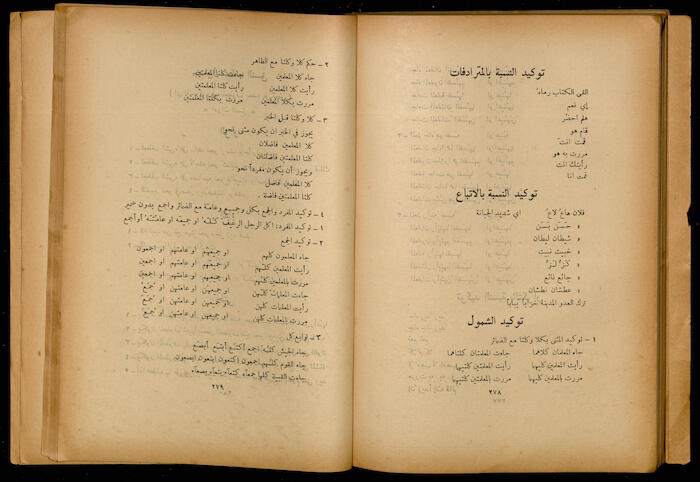 توكيد النسبة بالمترادفات
القى الكتاب رماه
إي نعم
هلم احضر
قام هو
قمت انت
مررت به هو
رأيتك انت
قمت انا
توكيد النسبة بالاتباع
فلان هاع لاع اي شديد الجبانة
« حسن بسن
« شيطان ليطان
« خبيث نبيث
« كز لز
« جائع نائع
« عطشان نطشان
ترك العدو المدينة خراباً يباباً
توكيد الشمول
١ - توكيد المثنى بكلا وكلتا مع الضمائر
جاء المعلمان كلاهما جاءت المعلمتان كلتاهما
رأيت المعلمين كليهما رأيت المعلمتين كلتيهما
مررت بالمعلمين كليهما مررت بالمعلمتين كلتيهما
٢٧٨
٢ - حكم كلا وكلتا مع الظاهر
جاء كلا المعلمين جاءت كلتا المعلمتين
رأيت كلا المعلمين رأيت كلتا المعلمتين
مررت بكلا المعلمين مررت بكلتا المعلمتين
٣ - كلا وكلتا قبل الخبر
يجوز في الخبر ان يكون مثنى نحو
كلا المعلمين فاضلان
كلتا المعلمتين فاضلتان
ويجوز أن يكون مفرداً نحو
كلا المعلمين فاضل
كلتا المعلمتين فاضلة
٤ - توكيد المفرد والجمع بكل وجميع وعامة مع الضمائر واجمع بدون ضمير
١ - توكيد المفرد: اكل الرجل الرغيف كله او جميعه او عامته او اجمع
٢ - توكيد الجمع
جاء المعلمون كلهم او جميعهم او عامتهم او اجمعون
رأيت المعلمين كلهم او جميعهم او عامتهم او اجمعين
مررت بالمعلمين كلهم او جميعهم او عامتهم او اجمعين
جاءت المعلمات كلهن او جميعهن او عامتهن او جمع
رأيت المعلمات كلهن او جميعهن او عامتهن او جمع
مررت بالمعلمات كلهن او جميعهن او عامتهن او جمع
٣ - توابع كل
جاء الجيش كله اجمع أكتع أبتع أبصع
جاء القوم كلهم اجمعون اكتعون ابتعون ابصعون
جاءت القبيلة كلها جمعاء كتعاء بتعاء بصعاء
٢٧٩